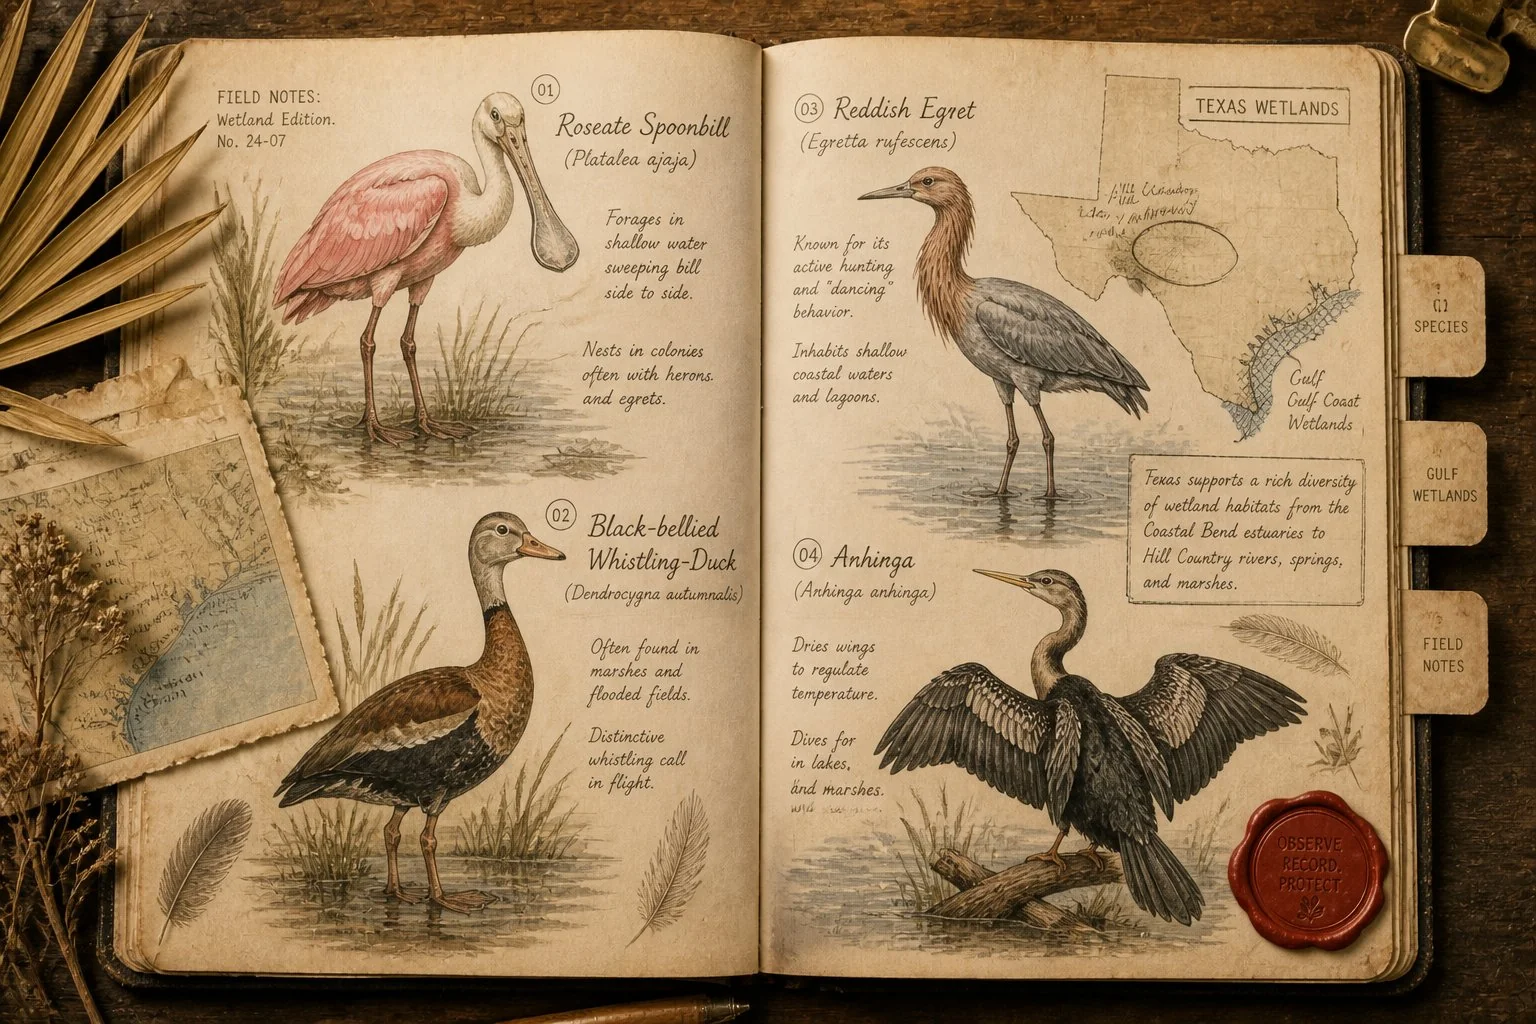 FIELD NOTES:
Wetland Edition.
No. 24-07
01
Roseate Spoonbill
(Platalea ajaja)
Forages in
shallow water
sweeping bill
side to side.
Nests in colonies
often with herons.
and egrets.
02
Black-bellied
Whistling-Duck
(Dendrocygna autumnalis)
Often found in
marshes and
flooded fields.
Distinctive
whistling call
in flight.
03 Reddish Egret
(Egretta rufescens)
Known for its
active hunting
and "dancing"
behavior.
Inhabits shallow
coastal waters
and lagoons.
TEXAS WETLANDS
Gulf
Gulf Coast
Wetlands
Texas supports a rich diversity
of wetland habitats from the
Coastal Bend estuaries to
Hill Country rivers, springs,
and marshes.
04 Anhinga
(Anhinga anhinga)
Dries wings
to regulate
temperature.
Dives for
in lakes,
and marshes.
SPECIES
GULF
WETLANDS
FIELD
NOTES
OBSERVE
RECORD.
PROTECT